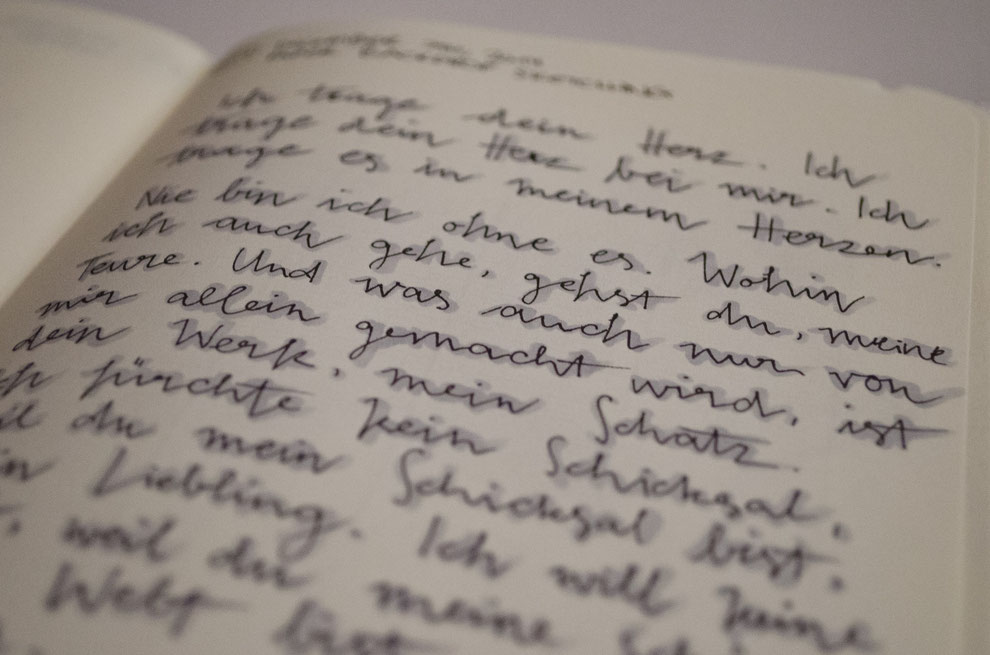 ich trage dein Herz. Ich
trage dein Herz bei mir. Ich
trage es in meinem Herzen.
Nie bin ich ohne es. Wohin
ich auch gehe, gehst du, meine
Teure. Und was auch nur von
mir allein gemacht wird, ist
dein Werk, mein Schatz.
fürchte kein Schicksal,
du mein Schicksal bist,
Liebling. Ich will keine
weil du meine
Welt bist